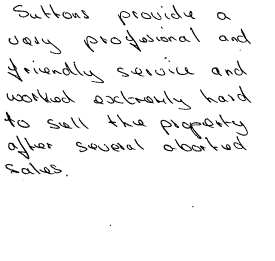 Suttons provide a
very profesional and
friendly service and
worked extremly hard
to sell the property
after several aborted
sales.